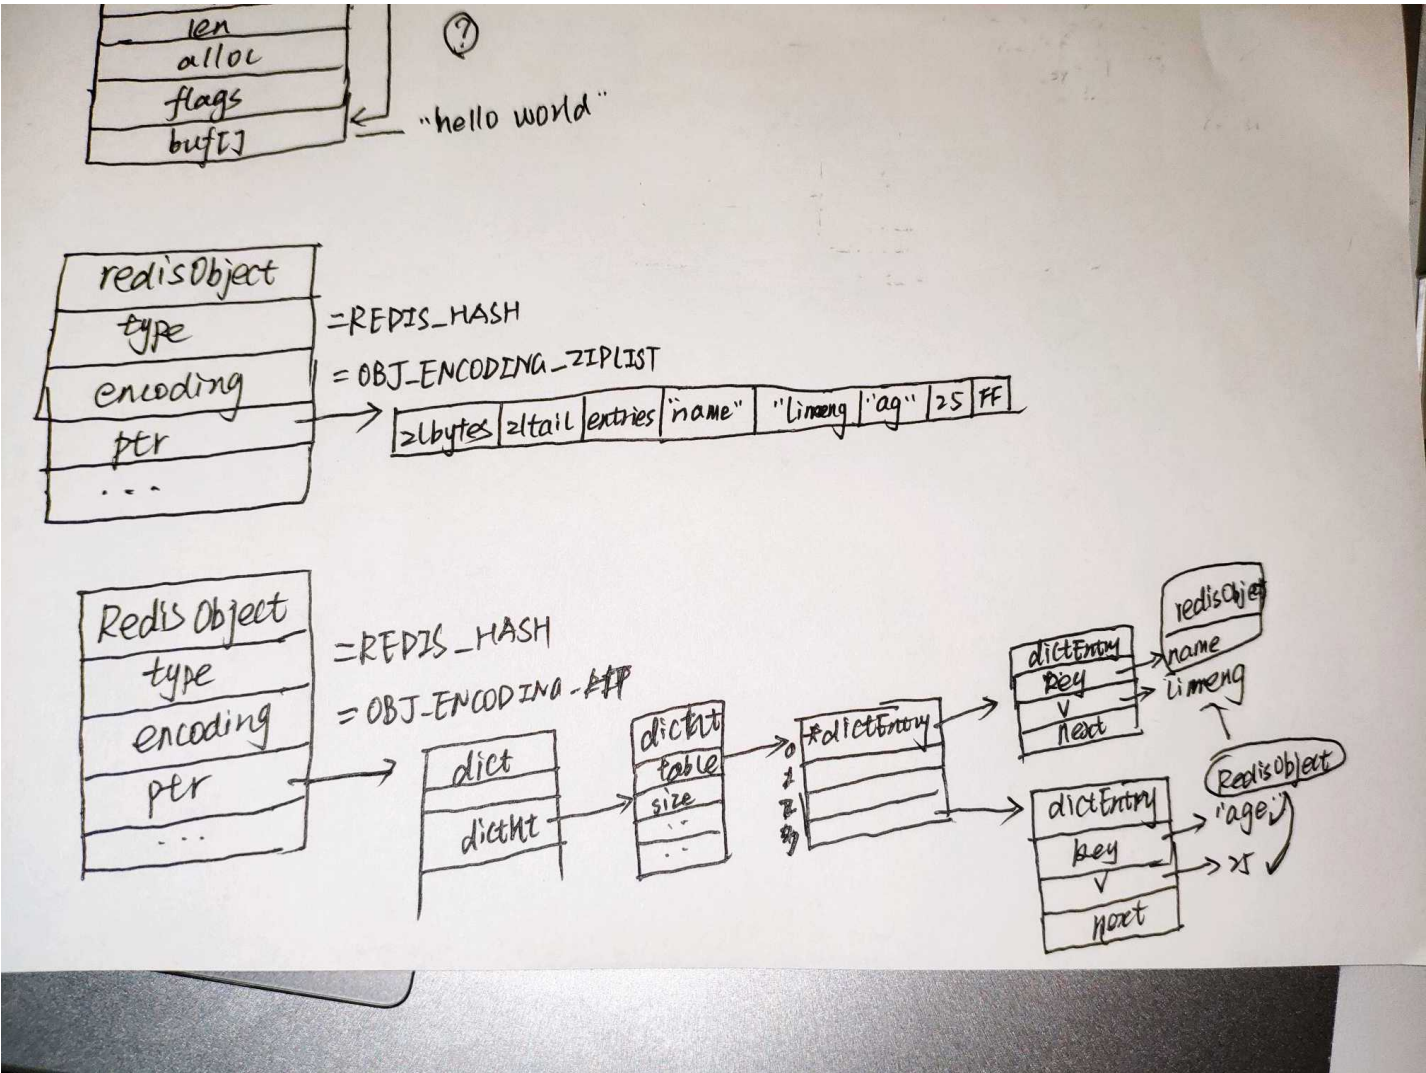 len
?
alloc
flags
"hello world"
buf[]
redisObject
type
=REDIS_HASH
encoding
= OBJ_ENCODING_ZIPLIST
ptr
zlbytes zltail entries "name" "limeng "ag" 25 FF
...
Redis Object
type
=REDIS_HASH
encoding
= OBJ_ENCODING_
ptr
...
dict
dictht
dictht
table
size
..
..
*dictEntry
0
1
2
3
dictEntry
key
v
next
redisObject
name
limeng
RedisObject
dictEntry
key
v
next
"age"
25